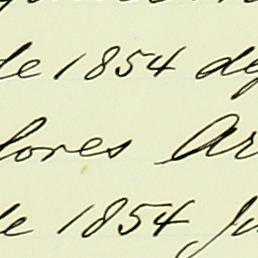 de 1854 de
lores Ar
de 1854 Ju